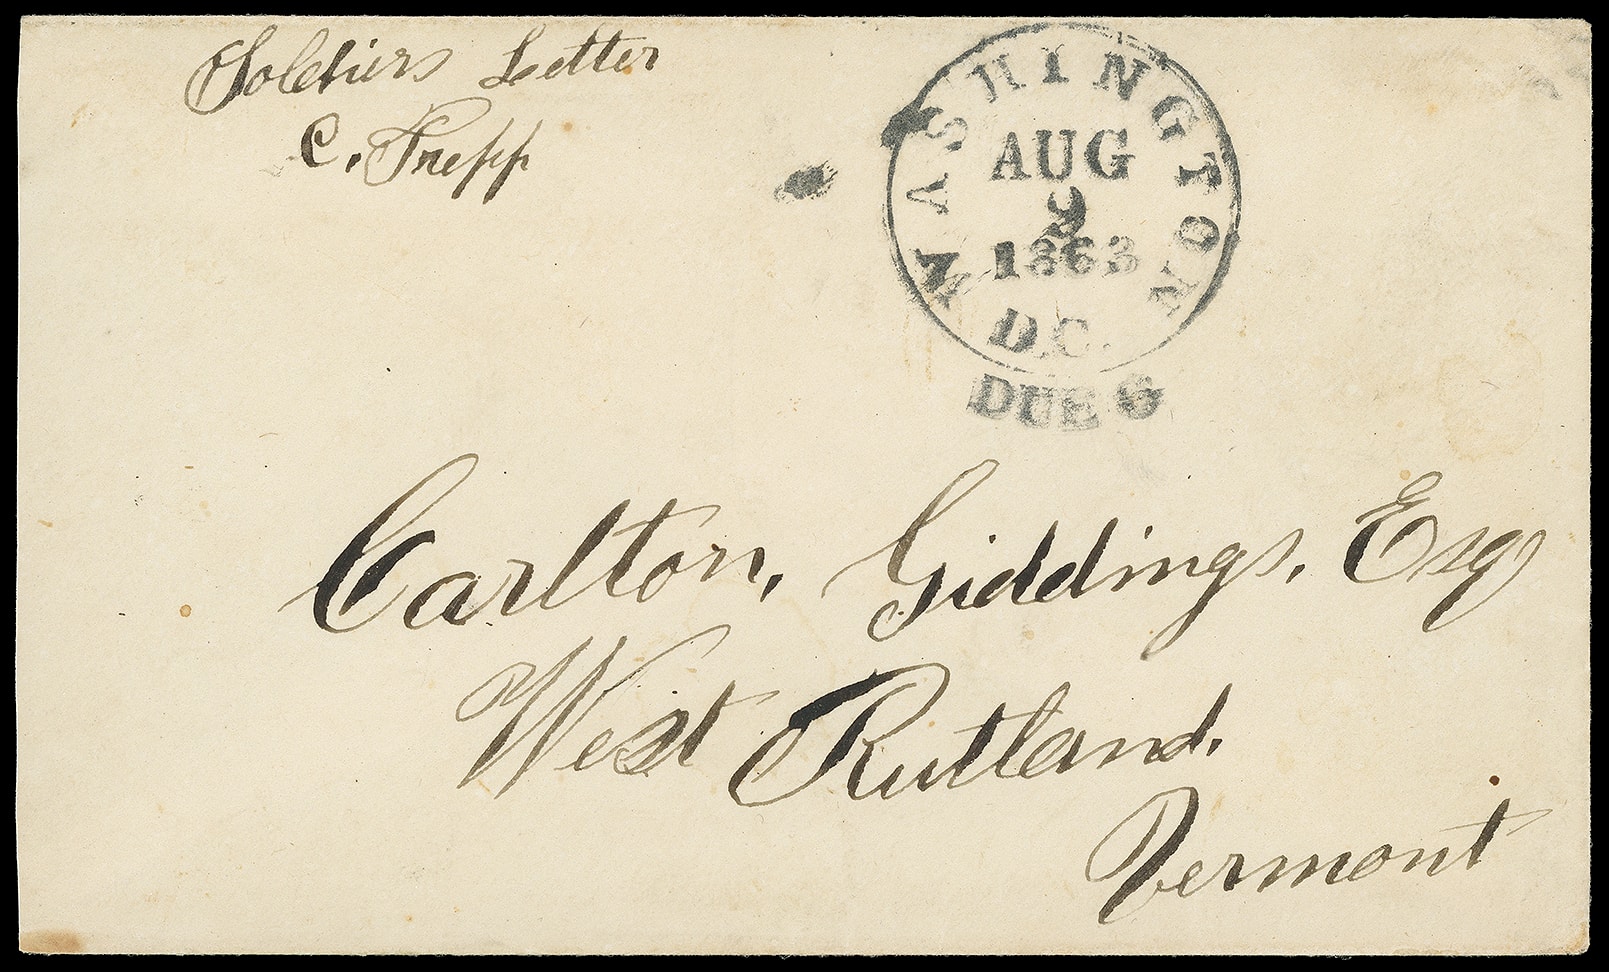 Soldiers Letter
C. Trepp
WASHINGTON
AUG
9
1863
D.C.
DUE 6
Carlton, Giddings, Esq
West Rutland,
Vermont